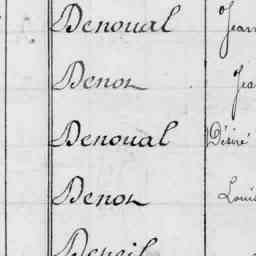 Denoual Jean
Denou Jea
Denoual Désiré
Denou Louis
Deneil